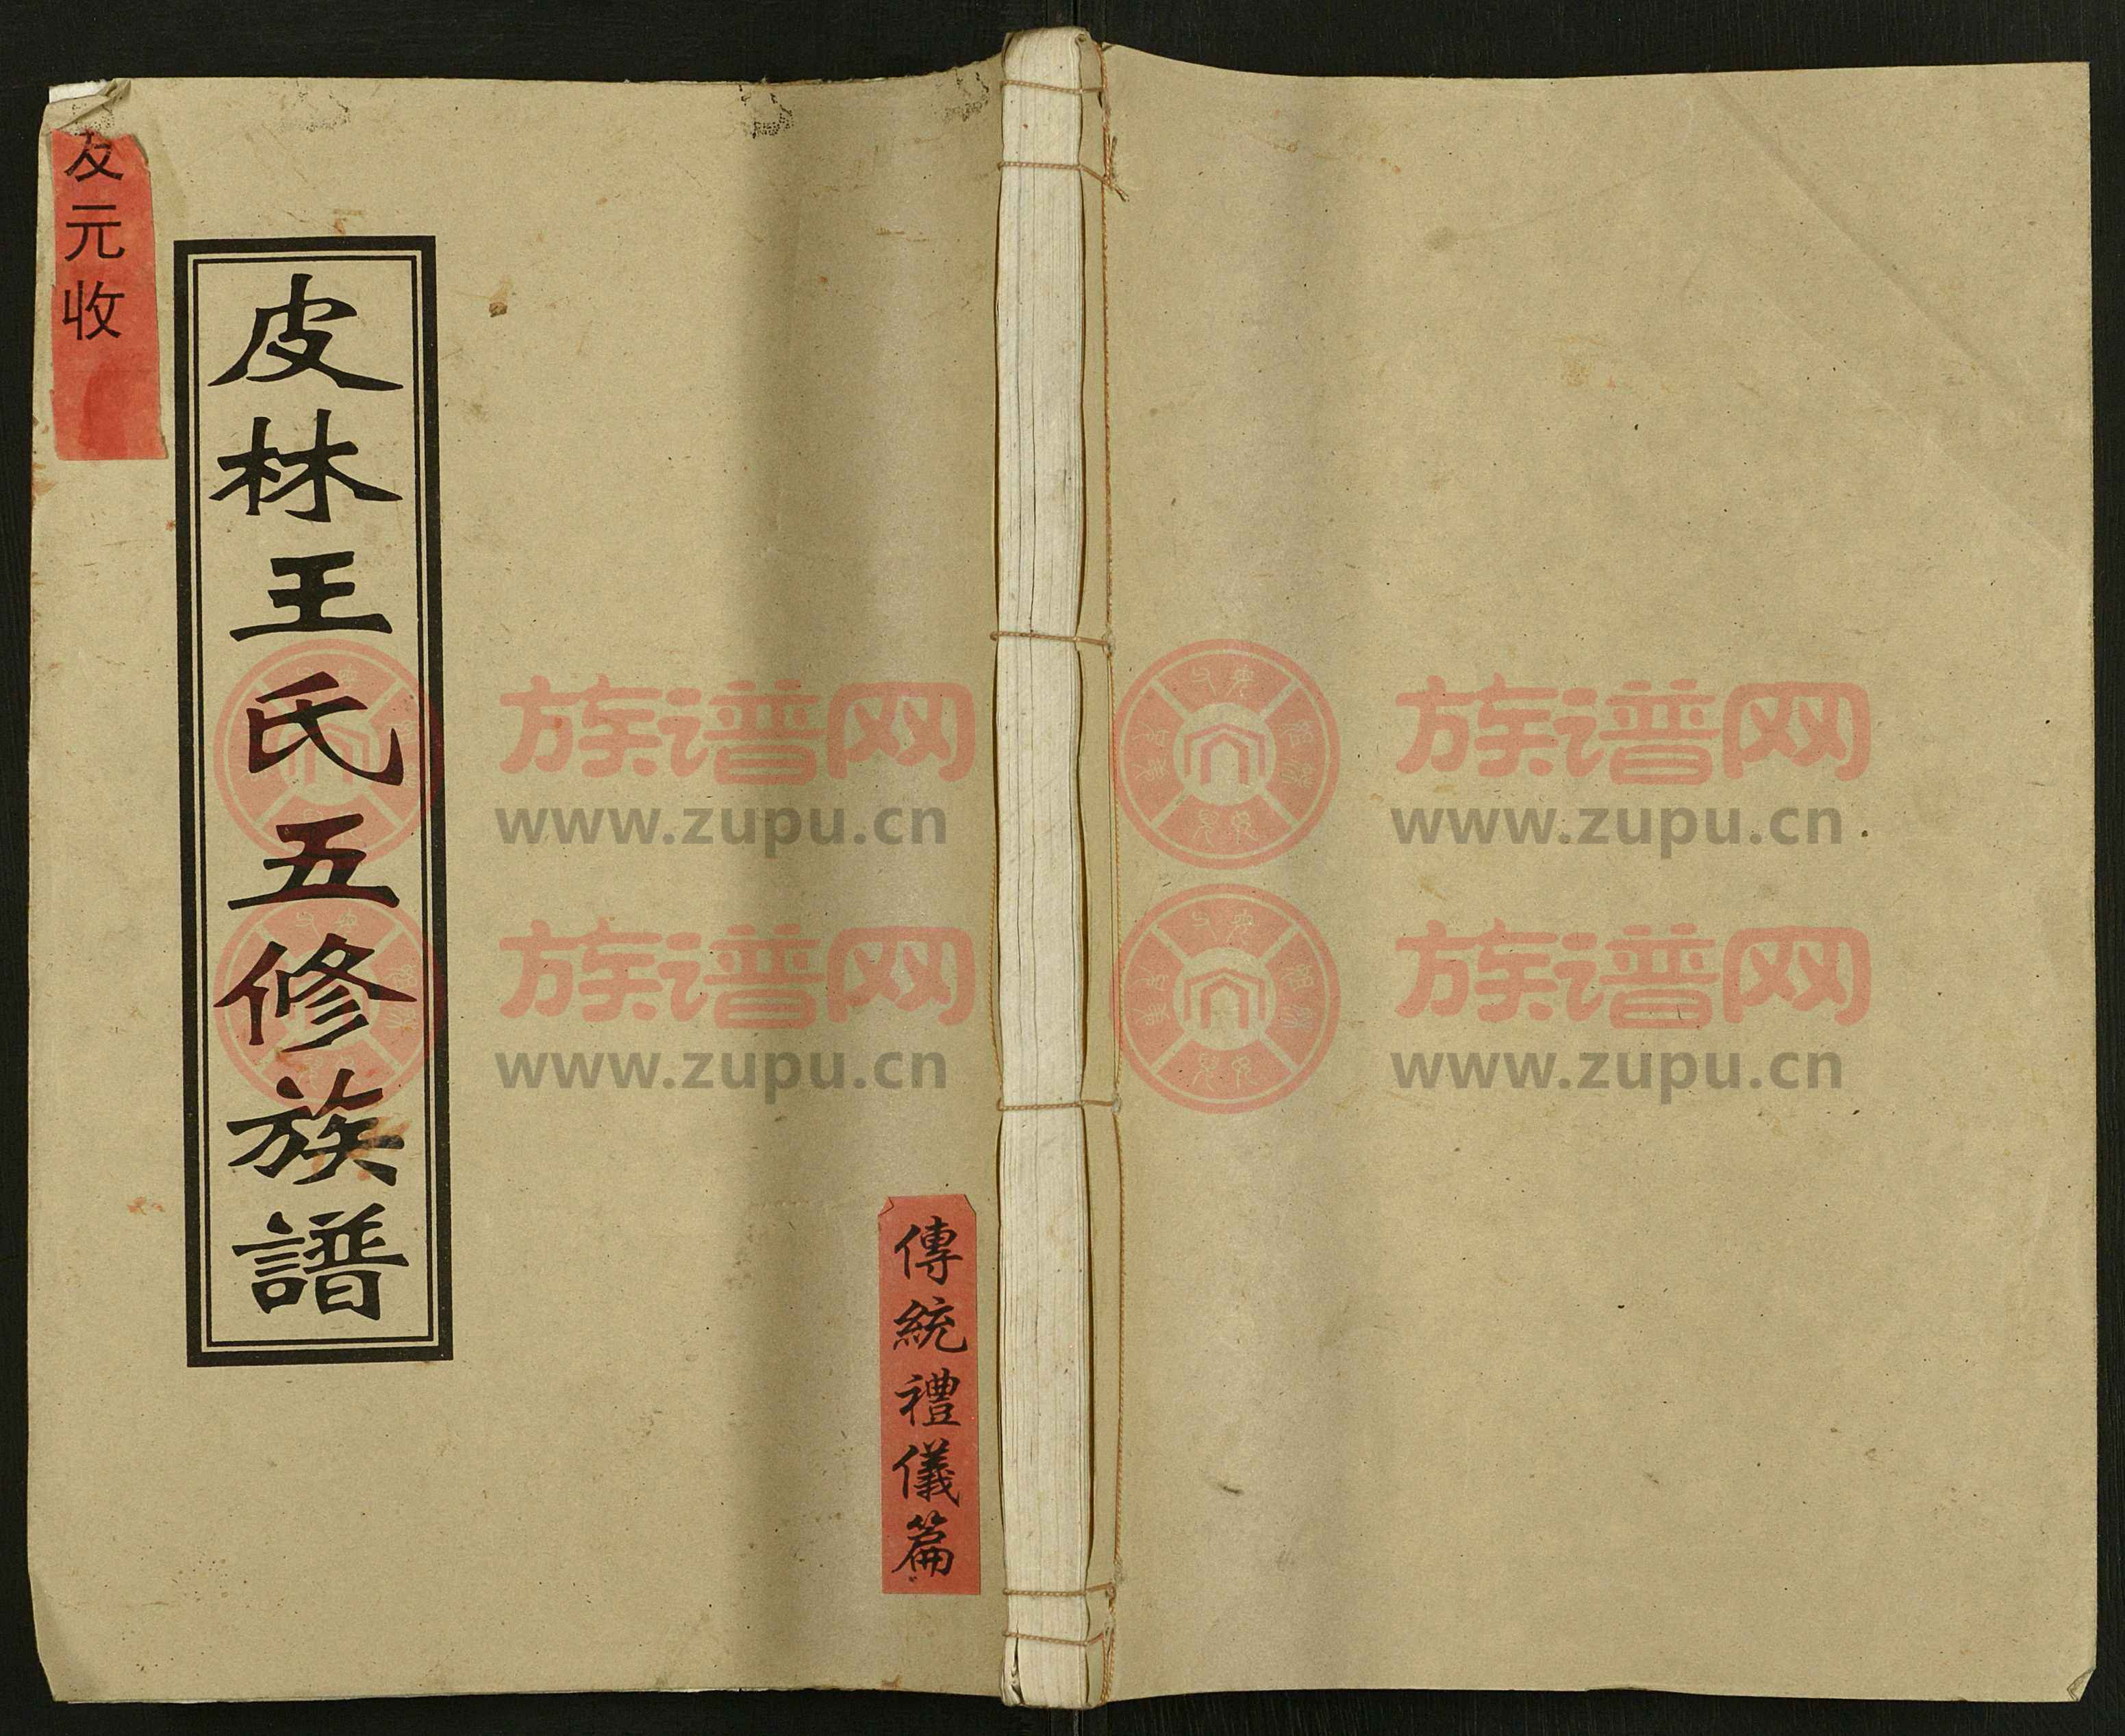 友元收
皮林王氏五修族譜
傳統禮儀篇
族谱网
www.zupu.cn
族谱网
www.zupu.cn
族谱网
www.zupu.cn
族谱网
www.zupu.cn